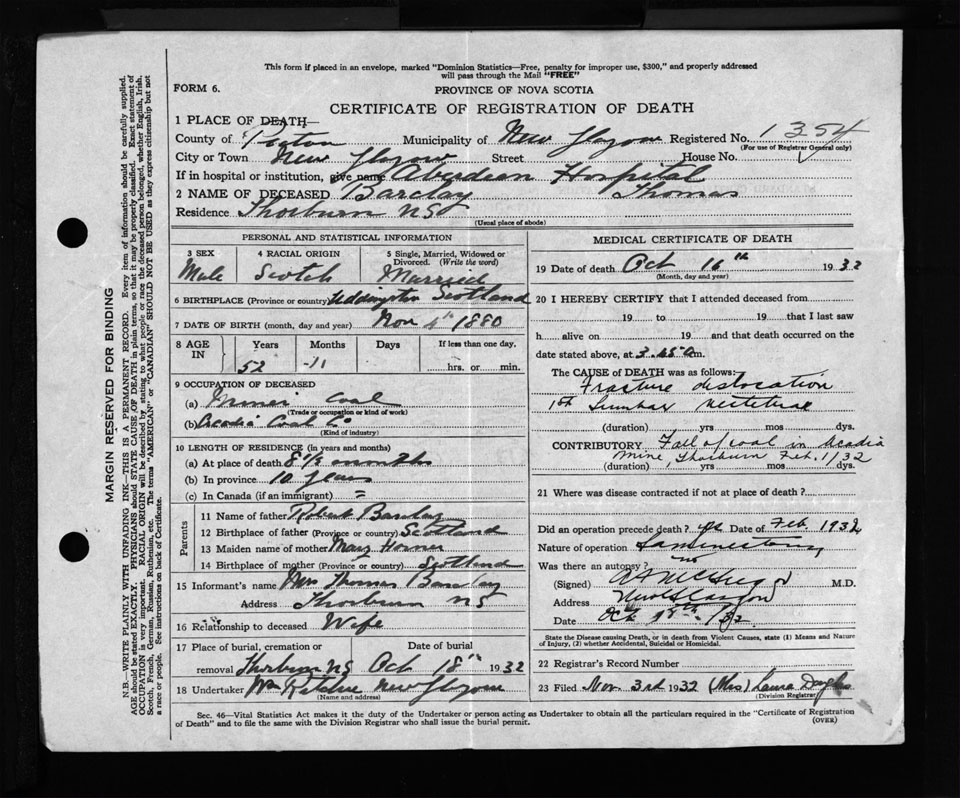 This form if placed in an envelope, marked "Dominion Statistics—Free, penalty for improper use, $300," and properly addressed
will pass through the Mail "FREE"
FORM 6.
PROVINCE OF NOVA SCOTIA
CERTIFICATE OF REGISTRATION OF DEATH
1 PLACE OF DEATH—
County of Pictou Municipality of New Glasgow Registered No. 1354
(For use of Registrar General only)
City or Town New Glasgow Street House No.
If in hospital or institution, give name Aberdean Hospital
2 NAME OF DECEASED Barclay Thomas
Residence Thorburn NS
(Usual place of abode)
PERSONAL AND STATISTICAL INFORMATION
3 SEX 4 RACIAL ORIGIN 5 Single, Married, Widowed or Divorced. (Write the word)
Male Scotch Married
6 BIRTHPLACE (Province or country) Uddingston Scotland
7 DATE OF BIRTH (month, day and year) Nov 1880
8 AGE IN Years Months Days If less than one day,
52 -11 hrs. or min.
9 OCCUPATION OF DECEASED
(a) Miner Coal
(Trade or occupation or kind of work)
(b) Acadia Coal Co
(Kind of industry)
10 LENGTH OF RESIDENCE (in years and months)
(a) At place of death 8 1/2 months
(b) In province 10 years
(c) In Canada (if an immigrant) =
Parents
11 Name of father Robert Barclay
12 Birthplace of father (Province or country) Scotland
13 Maiden name of mother Mary
14 Birthplace of mother (Province or country) Scotland
15 Informant's name Mrs Thomas Barclay
Address Thorburn NS
16 Relationship to deceased Wife
17 Place of burial, cremation or Date of burial
removal Thorburn NS Oct 18th 1932
18 Undertaker Wm Ritchie New Glasgow
(Name and address)
MEDICAL CERTIFICATE OF DEATH
19 Date of death Oct 16th 1932
(Month, day and year)
20 I HEREBY CERTIFY that I attended deceased from
19 to 19 that I last saw
h alive on 19 and that death occurred on the
date stated above, at 3.45 a m.
The CAUSE of DEATH was as follows:
Fracture dislocation
1st Lumbar vertebrae
(duration) yrs mos dys.
CONTRIBUTORY Fall of coal in Acadia
mine Thorburn Feb. 1/32
(duration) yrs mos dys.
21 Where was disease contracted if not at place of death?
Did an operation precede death? yes Date of Feb 1932
Nature of operation Laminectomy
Was there an autopsy? no
(Signed) M.D.
Address New Glasgow
Date Oct /32
State the Disease causing Death, or in death from Violent Causes, state (1) Means and Nature
of Injury, (2) whether Accidental, Suicidal or Homicidal.
22 Registrar's Record Number
23 Filed Nov. 3rd 1932 (Mrs) Laura Douglas
(Division Registrar)
Sec. 46—Vital Statistics Act makes it the duty of the Undertaker or person acting as Undertaker to obtain all the particulars required in the "Certificate of Registration
of Death" and to file the same with the Division Registrar who shall issue the burial permit.
(OVER)
MARGIN RESERVED FOR BINDING
N.B.—WRITE PLAINLY WITH UNFADING INK—THIS IS A PERMANENT RECORD. Every item of information should be carefully supplied.
AGE should be stated EXACTLY. PHYSICIANS should STATE CAUSE OF DEATH in plain terms, so that it may be properly classified. Exact statement of
OCCUPATION is very important. RACIAL ORIGIN will be described by stating to what people or race the deceased person belonged, whether English, Irish,
Scotch, French, German, Russian, Ruthenian, etc. The terms "AMERICAN" or "CANADIAN" SHOULD NOT BE USED as they express citizenship but not
a race or people. See instructions on back of Certificate.